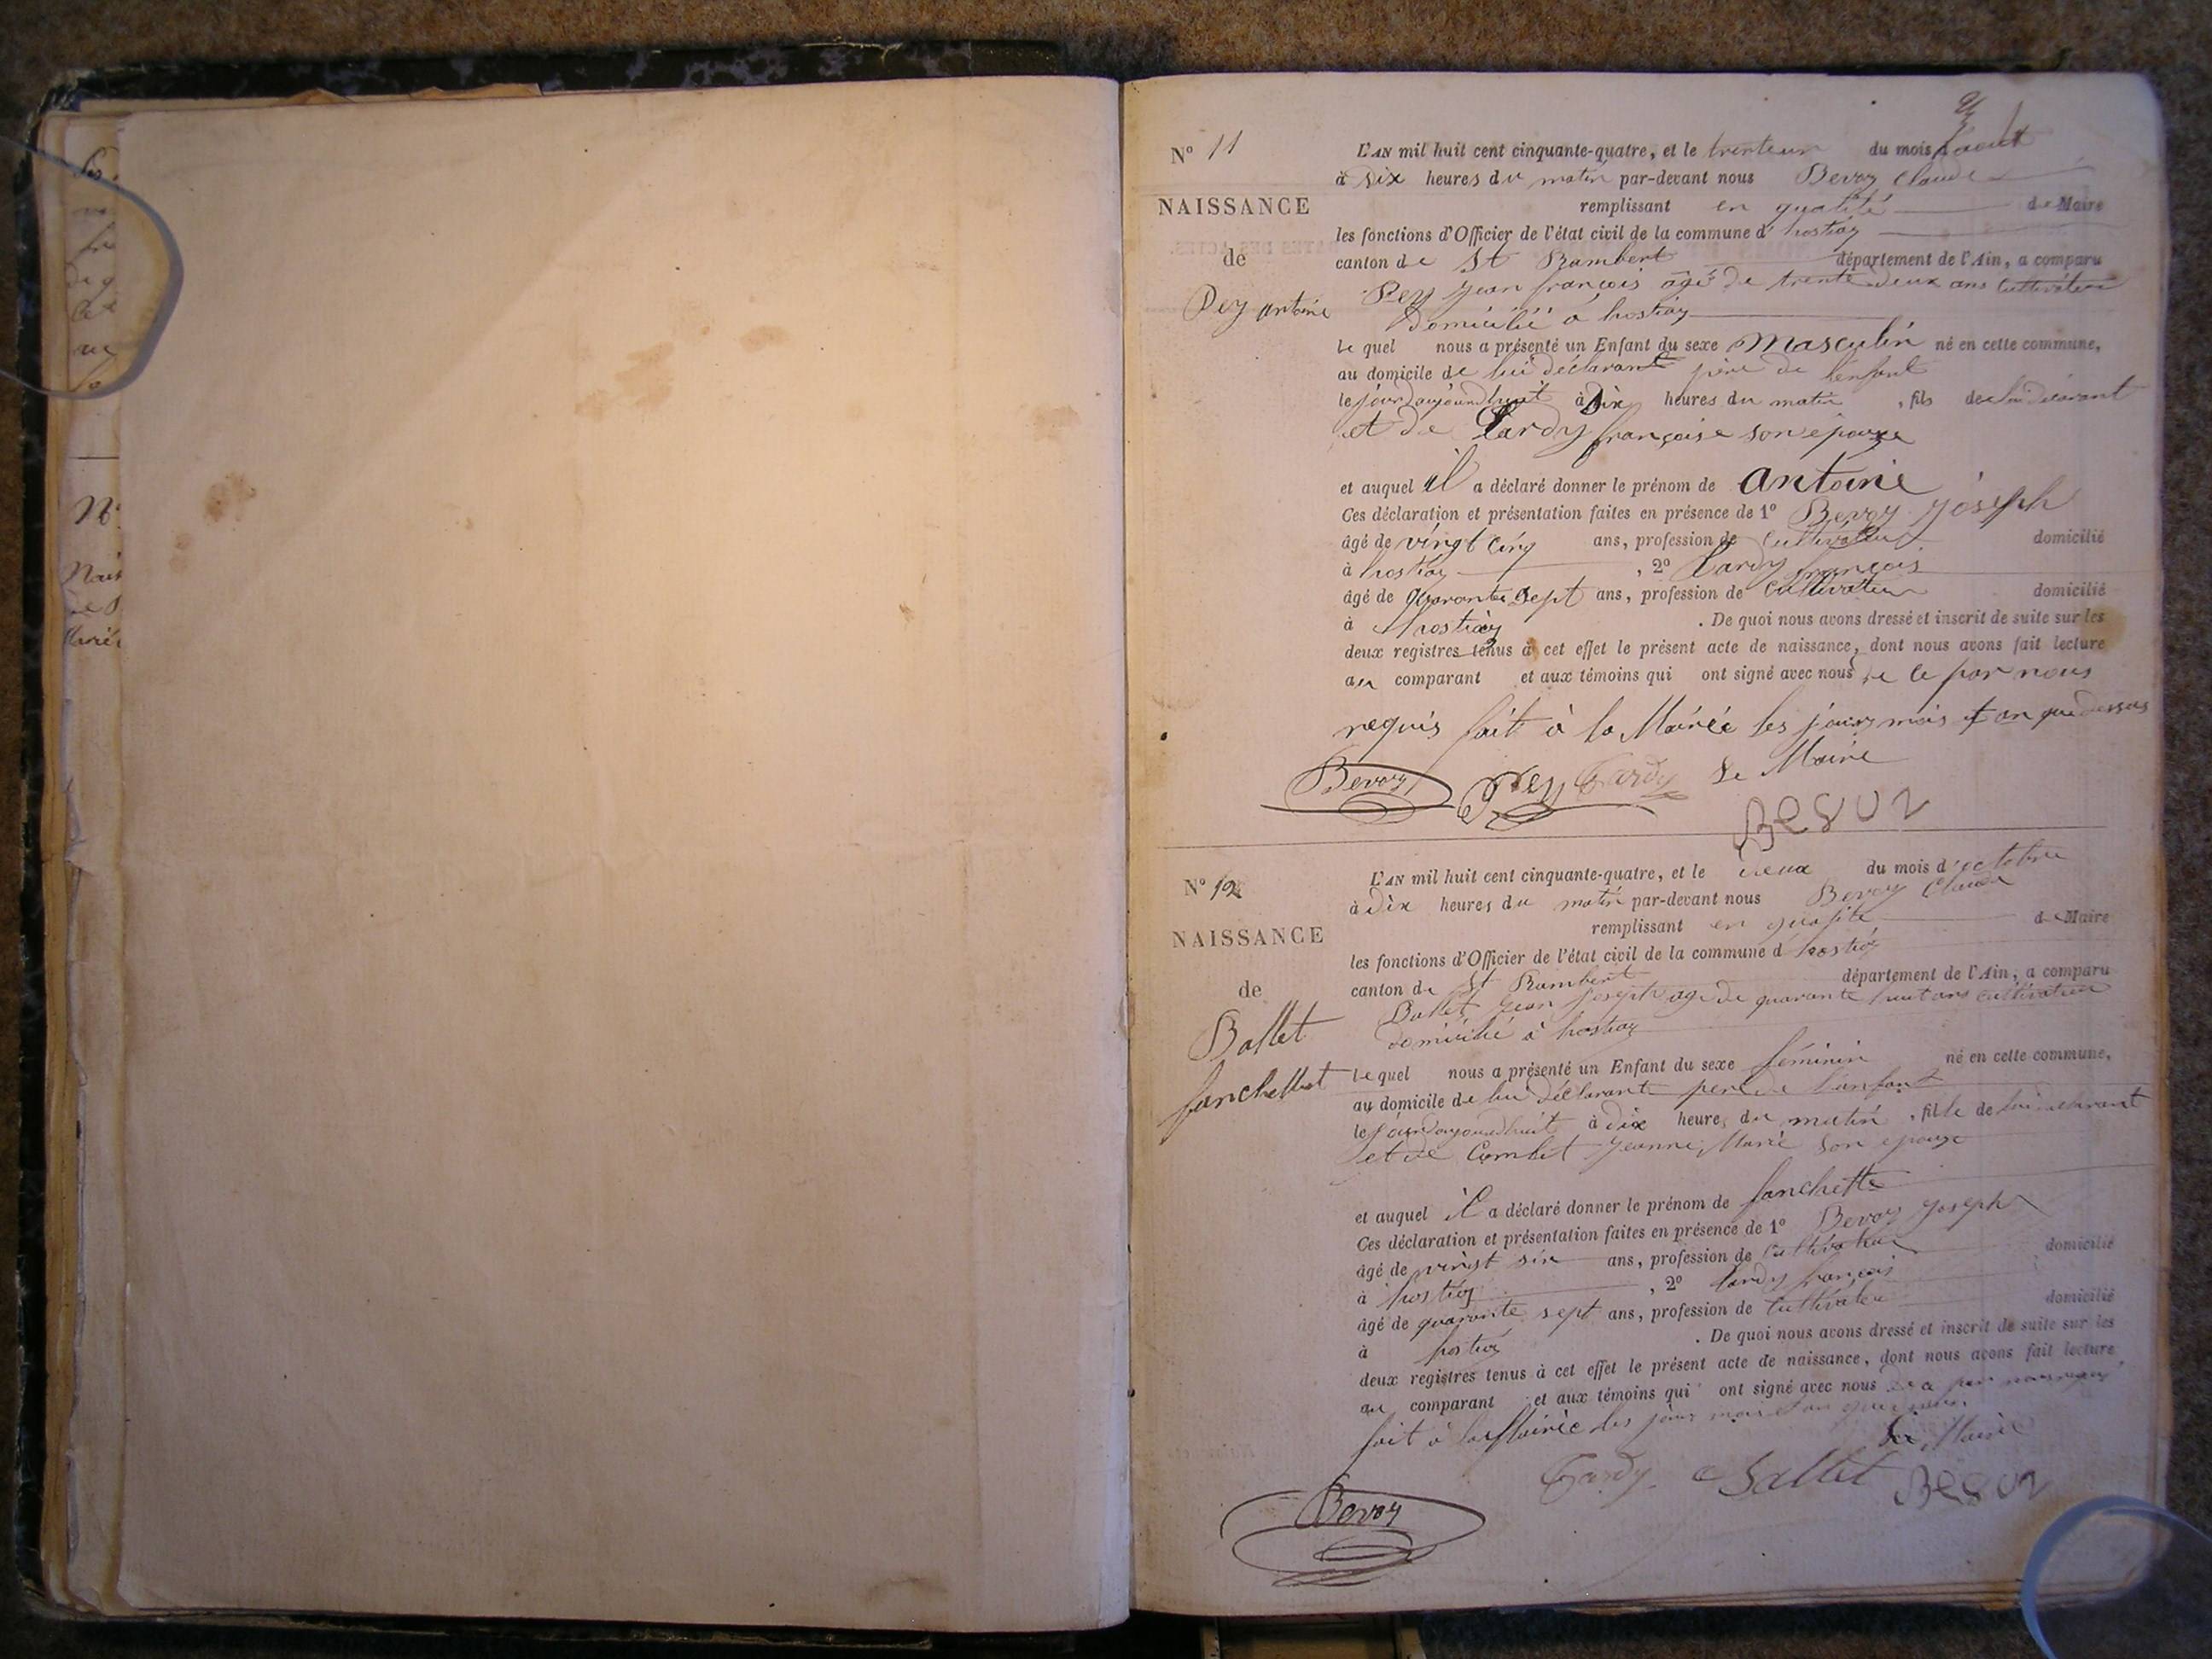 N° 11
NAISSANCE
de
Pey antoine
L'AN mil huit cent cinquante-quatre, et le trenteun du mois d'aout
à dix heures du matin par-devant nous Bevoz Claude
remplissant en qualité de Maire
les fonctions d'Officier de l'état civil de la commune d'hostiaz
canton de St Rambert département de l'Ain, a comparu
Pey jean françois âgé de trente deux ans Cultivateur
domicilié à hostiaz
Le quel nous a présenté un Enfant du sexe Masculin né en cette commune,
au domicile de lui déclarant père de lenfant
le jour daujourdhuit à dix heures du matin, fils de lui déclarant
et de Tardy françoise son épouze
et auquel il a déclaré donner le prénom de antoine
Ces déclaration et présentation faites en présence de 1° Bevoz joseph
âgé de vingt cinq ans, profession de Cultivateur domicilié
à hostiaz, 2° Tardy françois
âgé de quarante sept ans, profession de Cultivateur domicilié
à hostiaz. De quoi nous avons dressé et inscrit de suite sur les
deux registres tenus à cet effet le présent acte de naissance, dont nous avons fait lecture
au comparant et aux témoins qui ont signé avec nous de ce par nous
requis fait à la Mairie les jours mois et an que dessus
Bevoz Pey Tardy Le Maire
Bevoz
N° 12
NAISSANCE
de
Ballet
fanchette
L'AN mil huit cent cinquante-quatre, et le deux du mois d'octobre
à dix heures du matin par-devant nous Bevoz Claude
remplissant en qualité de Maire
les fonctions d'Officier de l'état civil de la commune d'hostiaz
canton de St Rambert département de l'Ain, a comparu
Ballet jean joseph age de quarante huit ans cultivateur
domicilié à hostiaz
Le quel nous a présenté un Enfant du sexe féminin né en cette commune,
au domicile de lui déclarant pere de l'anfant
le jour daujourdhuit à dix heures du matin, fille de lui declarant
et de Combet jeanne Marie son epouze
et auquel il a déclaré donner le prénom de fanchette
Ces déclaration et présentation faites en présence de 1° Bevoz joseph
âgé de vingt six ans, profession de Cultivateur domicilié
à hostiaz, 2° tardy françois
âgé de quarante sept ans, profession de Cultivateur domicilié
à hostiaz. De quoi nous avons dressé et inscrit de suite sur les
deux registres tenus à cet effet le présent acte de naissance, dont nous avons fait lecture
au comparant et aux témoins qui ont signé avec nous de ce par nous
fait à la Mairie les jour mois et an que dessus
Le Maire
Tardy Ballet Bevoz
Bevoz